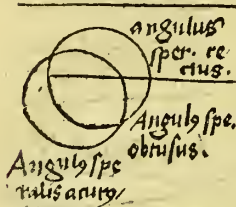 angulus
sper. re-
ctus.
Angulꝰ spe.
obtusus.
Angulꝰ spe
ralis acutꝰ/